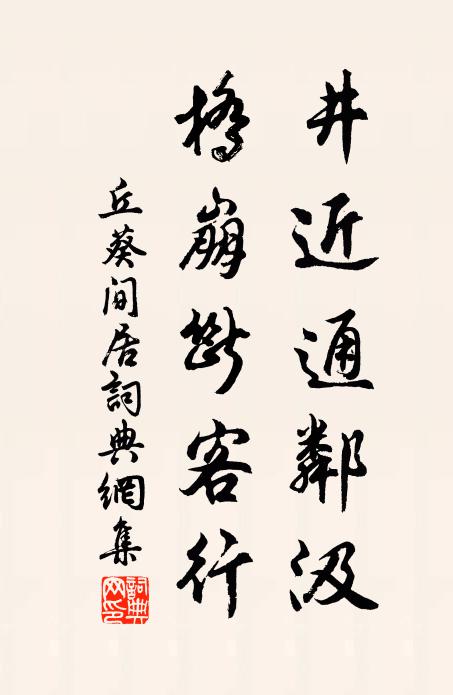 井近通鄰汲
橋崩斷客行
丘葵閒居詞典網集
詞典網印